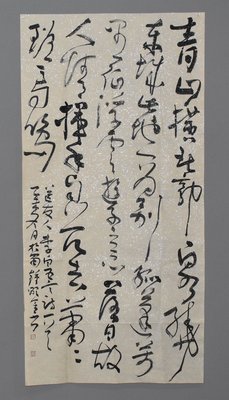 青山橫北郭白水繞
東城此地一為別孤蓬萬
里征浮雲遊子意落日故
人情揮手自茲去蕭々
班馬鳴
送友人李白五言詩一首